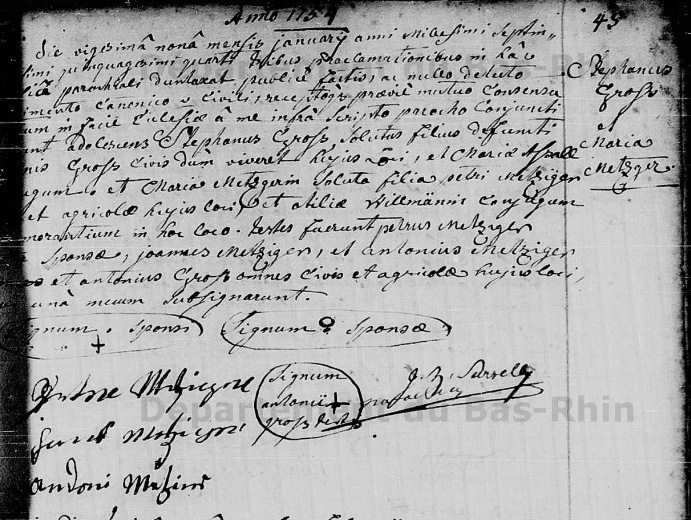 Anno 1754
45
Die vigesimâ nonâ mensis januarij anni Millesimi Septin„
simi quinquagesimi quarti tribus proclamationibus in hâc
parochiali duntaxat publicè factis, ac nullo detecto
imento Canonico v Civili, receptoq̃ prævie mutuo Consensu
um in facie Ecclesiæ â me infrâ Scripto parocho Conjuncti
unt adolescens Stephanus Gross, Solutus filius defuncti
nis Gross Civis dum viveret hujus loci, et Mariæ
ugum. et Maria Metzgerin Soluta filia petri Metziger
et agricolæ hujus loci, et otiliæ Willmännin Conjugum
morantium in hoc loco. testes fuerunt petrus Metziger
Sponsæ, joannes Metziger, et antonius Metziger
et antonius Gross omnes Civis et agricolæ hujus loci,
unâ mecum subsignarunt.
Stephanus
Gross
et
Maria
Metzger.
Signum Sponsi
Signum Sponsæ
Signum
antonii
gross testis
andoni
Département du Bas-Rhin